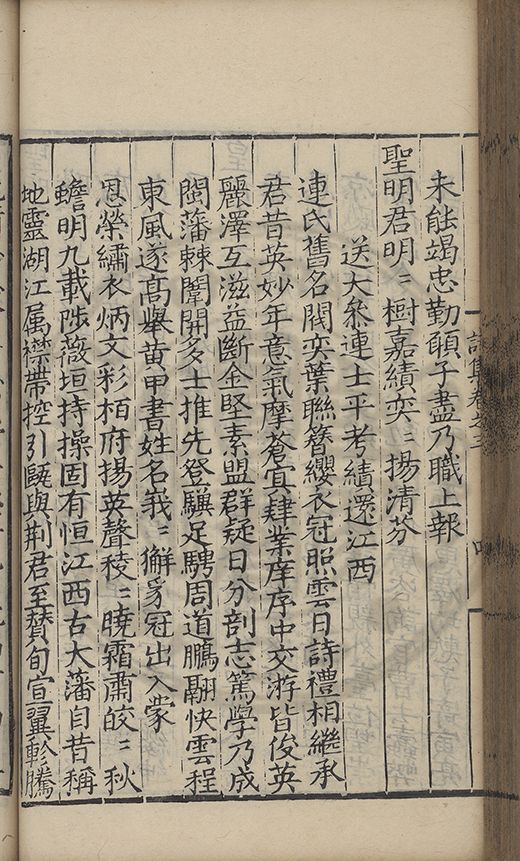 未能竭忠勤願子盡乃職上報
聖明君明〻樹嘉績奕〻揚清芬
送大叅連士平考績還江西
連氏舊名閥奕葉聯簪纓衣冠照雲日詩禮相繼承
君昔英妙年意氣摩蒼宜肄業庠序中交游皆俊英
麗澤互滋益斷金堅素盟群疑日分剖志篤學乃成
閩藩棘闈開多士推先登驥足騁周道鵬翮快雲程
東風遂高舉黄甲書姓名峩〻獬豸冠出入蒙
恩榮繡衣炳文彩栢府揚英聲稜〻曉霜肅皎〻秋
蟾明九載陟薇垣持操固有恒江西古大藩自昔稱
地靈湖江属襟帶控引甌與荆君至賛旬宣翼軫騰